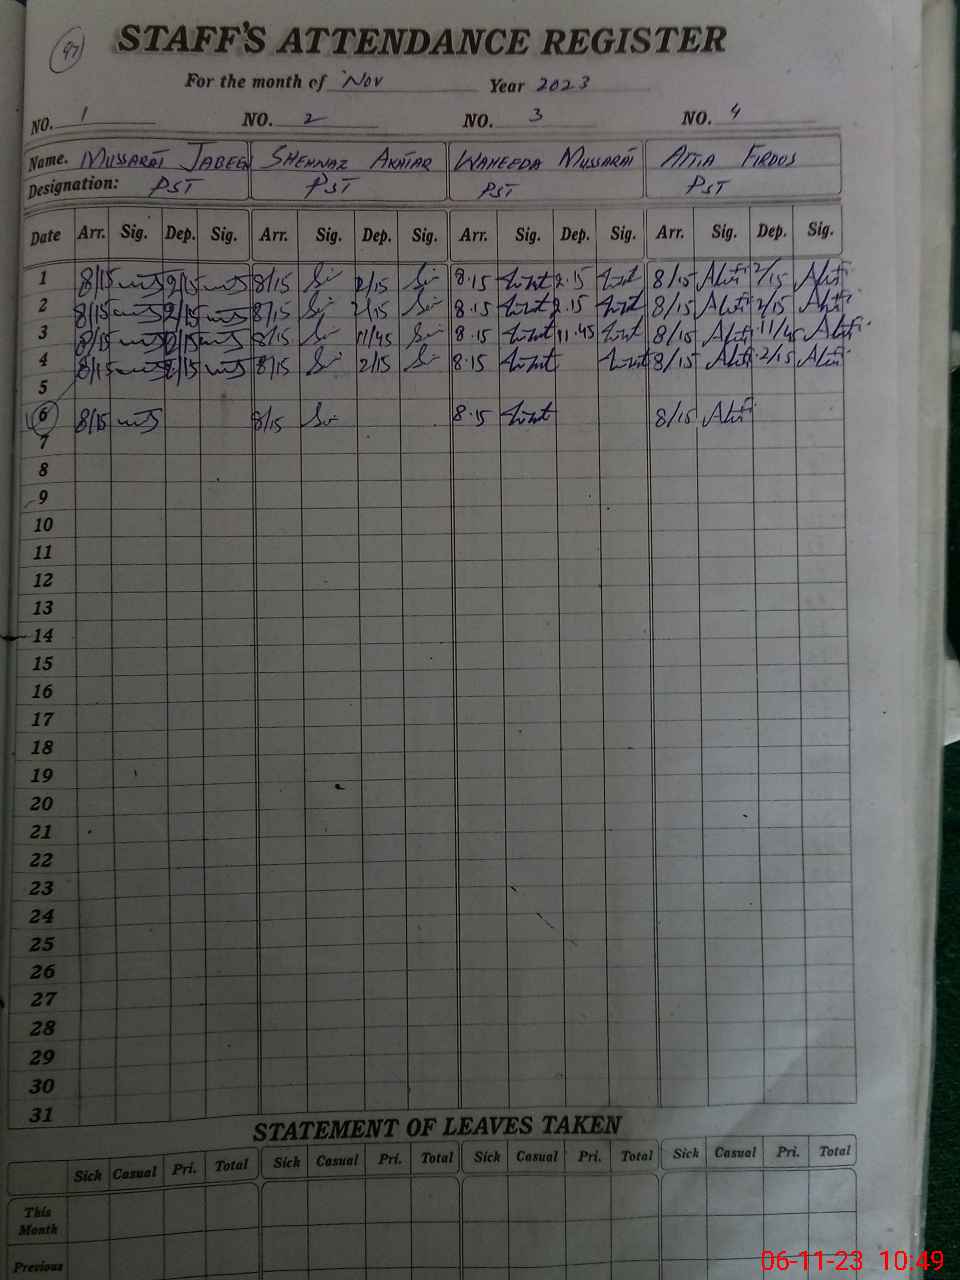 97
STAFF'S ATTENDANCE REGISTER
For the month of Nov Year 2023
NO. 1 NO. 2 NO. 3 NO. 4
Name. MUSSARAT JABEEN SHEHNAZ AKHTAR WAHEEDA MUSSARAT ATTIA FIRDOUS
Designation: PST PST PST PST
Date Arr. Sig. Dep. Sig. Arr. Sig. Dep. Sig. Arr. Sig. Dep. Sig. Arr. Sig. Dep. Sig.
1 8/15 2/15 8/15 2/15 8.15 2.15 8/15 2/15
2 8/15 2/15 8/15 2/15 8.15 2.15 8/15 2/15
3 8/15 8/15 11/45 8.15 11.45 8/15 11/45
4 8/15 2/15 8/15 2/15 8.15 8/15 2/15
5
6 8/15 8/15 8.15 8/15
7
8
9
10
11
12
13
14
15
16
17
18
19
20
21
22
23
24
25
26
27
28
29
30
31
STATEMENT OF LEAVES TAKEN
Sick Casual Pri. Total Sick Casual Pri. Total Sick Casual Pri. Total Sick Casual Pri. Total
This
Month
Previous
06-11-23 10:49